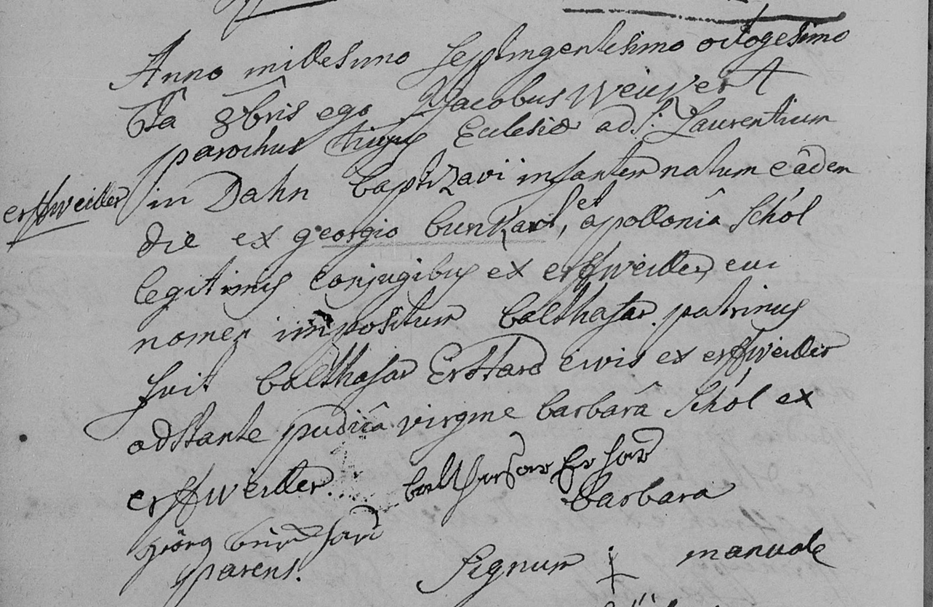 Anno millesimo septingentesimo octogesimo
8bris ego Jacobus Weuvert
parochus hujus Ecclesiæ ad s: Laurentium
erffweiller in Dahn baptizavi infantem natum eâdem
die ex georgio burkart, et apollonia Schöl
legitimis conjugibus ex erffweiller, cui
nomen impositum balthasar. patrinus
fuit balthasar Erhard civis ex erffweiller
adstante pudicâ virgine barbarâ Schöl ex
erffweiller. balthasar Erhard
barbara
görg
parens. Signum † manuale